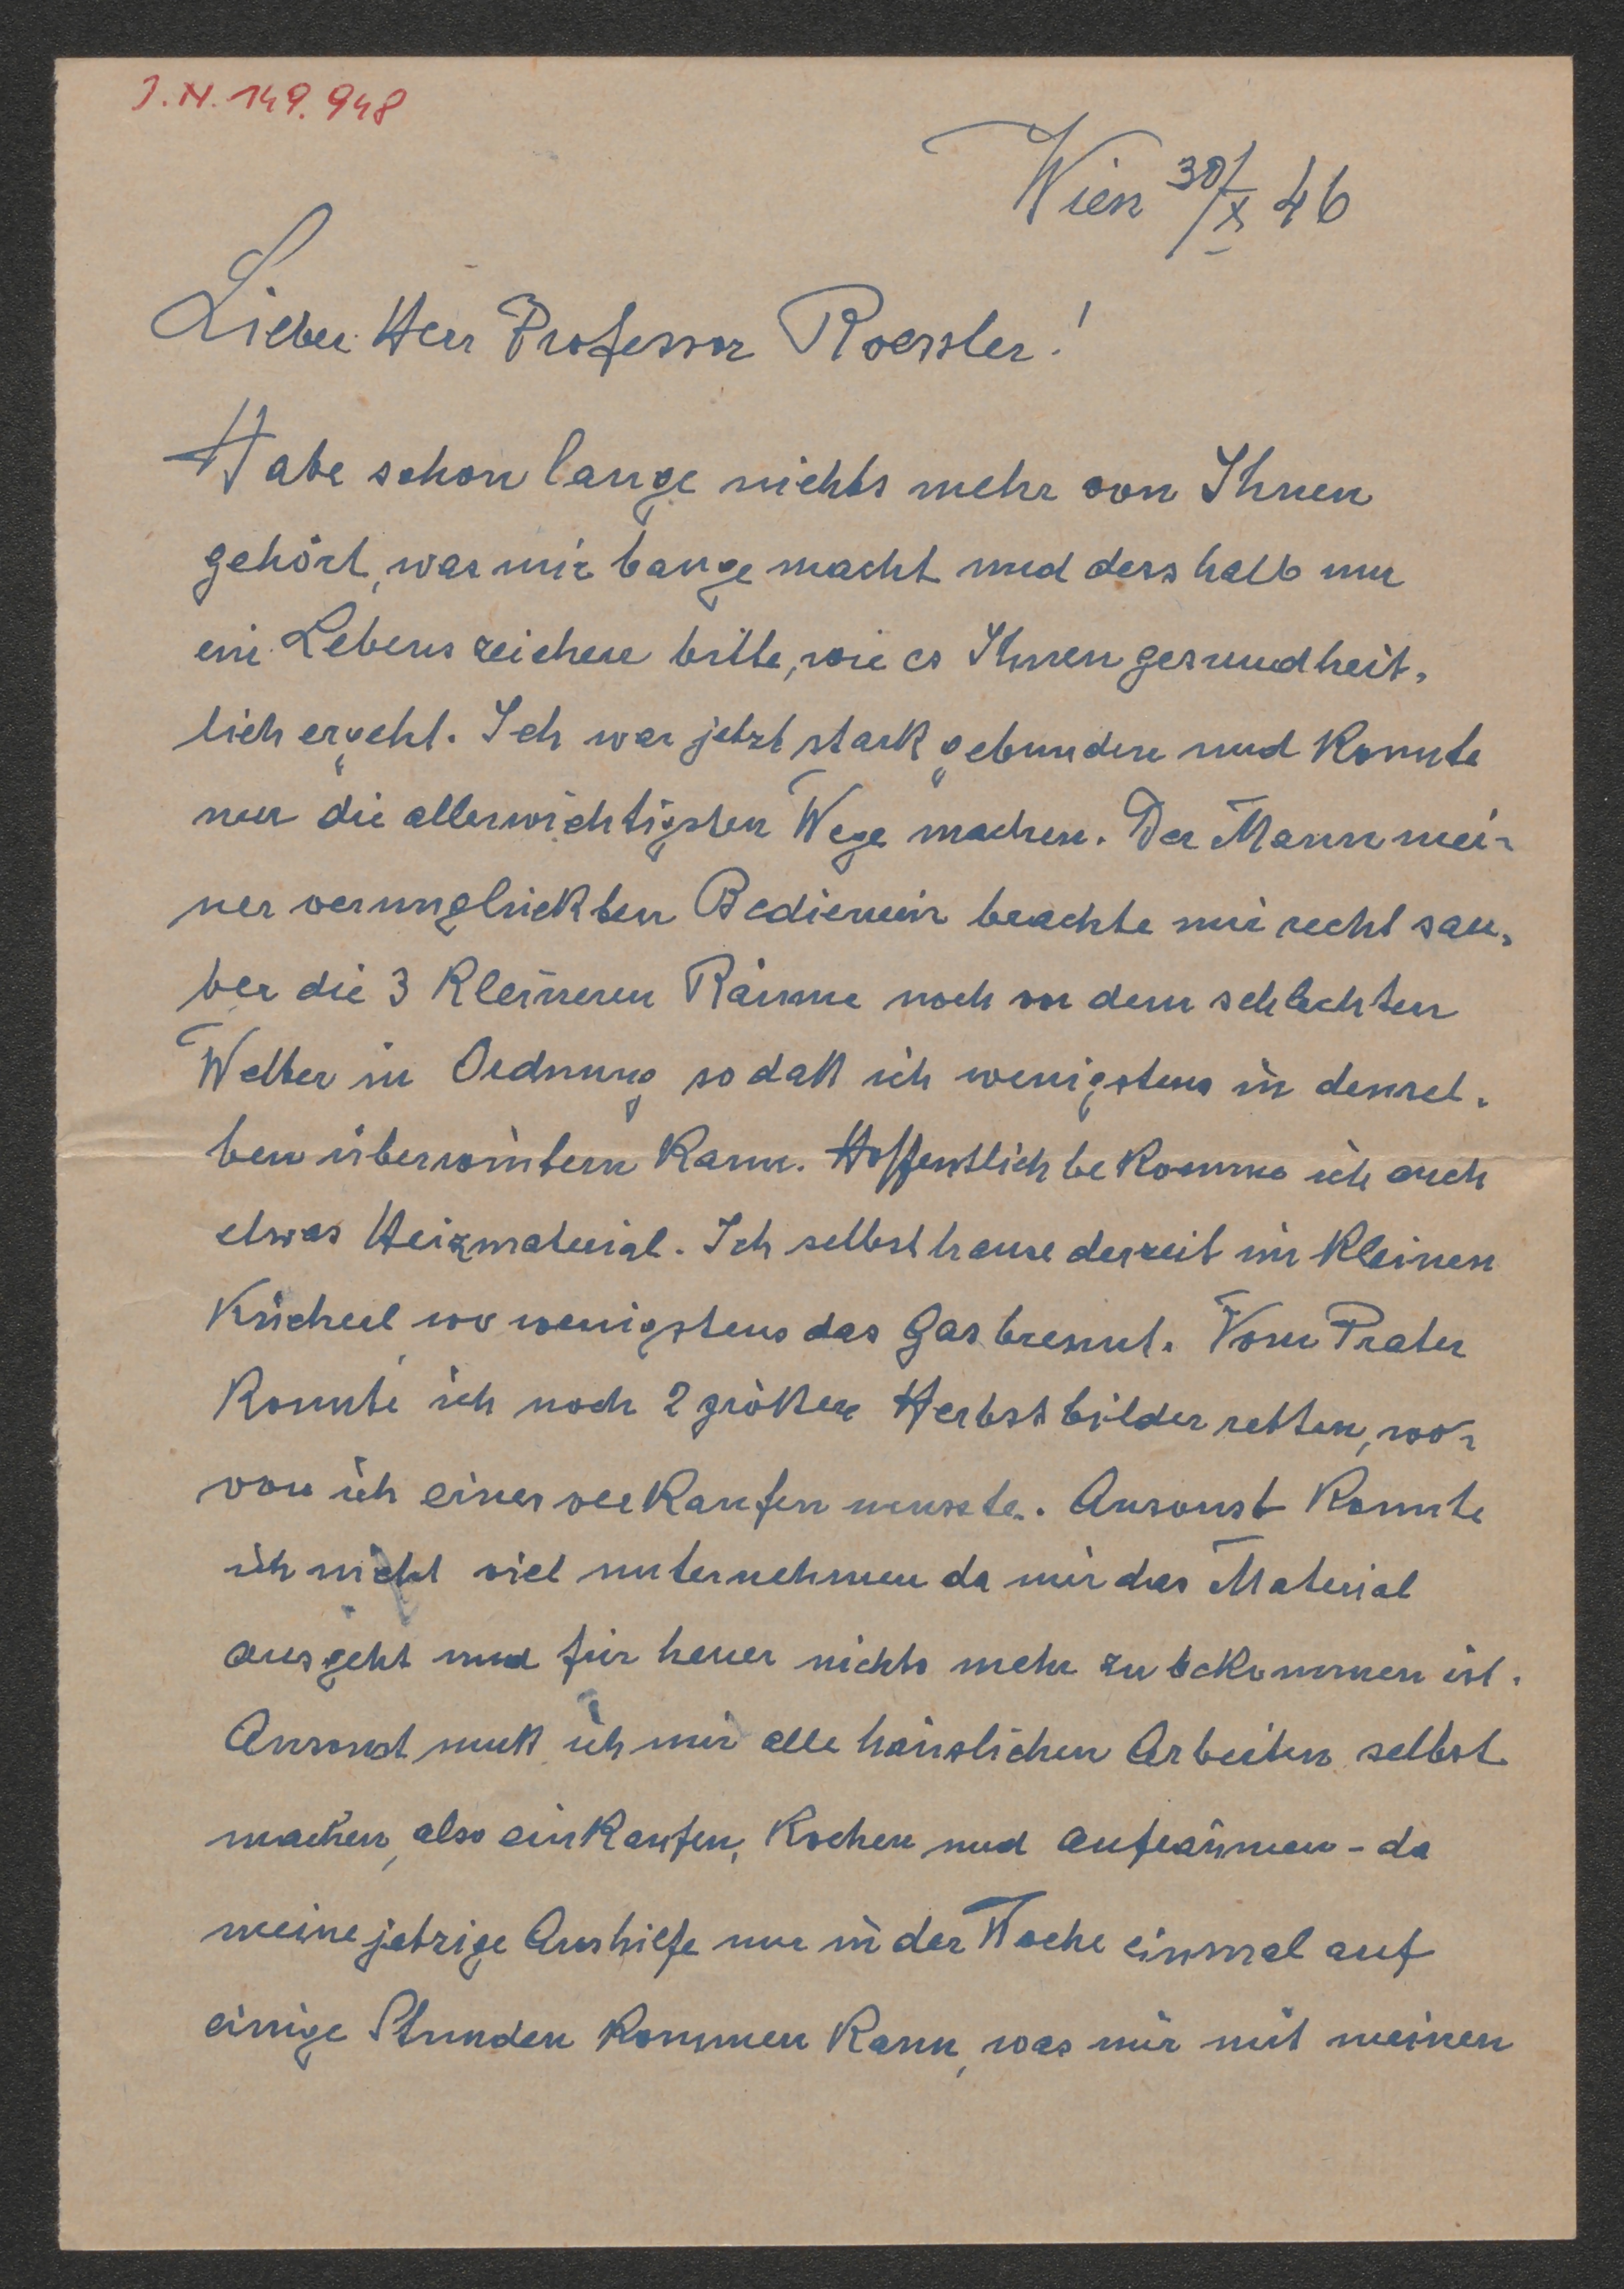 J.N. 149.948
Wien 30/X 46
Lieber Herr Professor Roessler!
Habe schon lange nichts mehr von Ihnen
gehört, was mir bange macht und desshalb um
ein Lebenszeichen bitte, wie es Ihnen gesundheit-
lich ergeht. Ich war jetzt stark gebunden und konnte
nur die allerwichtigsten Wege machen. Der Mann mei-
ner verunglückten Bedienerin brachte mir recht sau-
ber die 3 kleineren Räume noch vor dem schlechten
Wetter in Ordnung so daß ich wenigstens in densel-
ben überwintern kann. Hoffentlich bekomme ich auch
etwas Heizmaterial. Ich selbst hause derzeit im kleinen
Kücherl wo wenigstens das Gas brennt. Vom Prater
konnte ich noch 2 größere Herbstbilder retten, wo-
von ich eines verkaufen musste. Ansonst konnte
ich nicht viel unternehmen da mir das Material
ausgeht und für heuer nichts mehr zu bekommen ist.
Ansonst muß ich mir alle häuslichen Arbeiten selbst
machen, also einkaufen, kochen und aufräumen - da
meine jetzige Aushilfe nur in der Woche einmal auf
einige Stunden kommen kann, was mir mit meinen